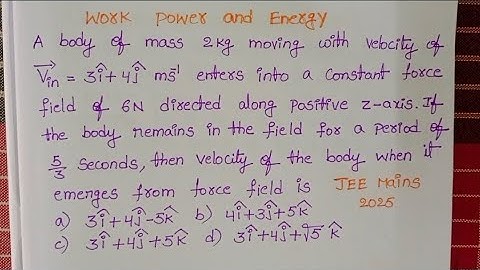 Work Power and Energy
A body of mass 2kg moving with velocity of
V⃗in = 3î+4ĵ ms⁻¹ enters into a constant force
field of 6N directed along positive z-axis. If
the body remains in the field for a period of
5/3 seconds, then velocity of the body when it
emerges from force field is JEE Mains
2025
a) 3î+4ĵ-5k̂ b) 4î+3ĵ+5k̂
c) 3î+4ĵ+5k̂ d) 3î+4ĵ+√5 k̂